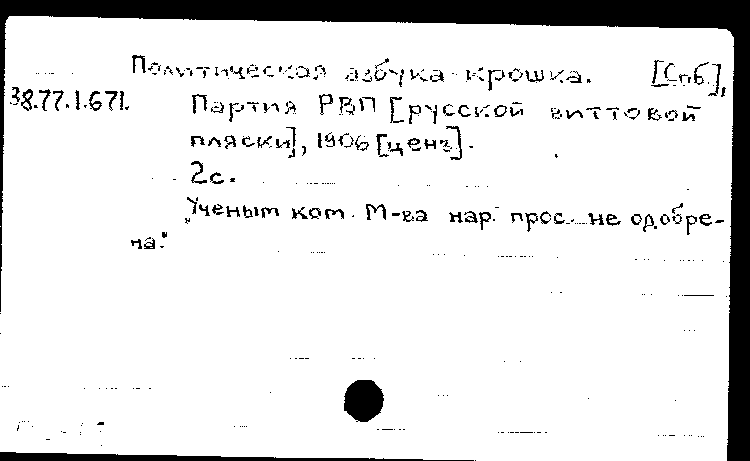 Политическая азбука-крошка. [Спб.],
38.77.1.671. Партия РВП [русской виттовой
пляски], 1906 [ценз].
2с.
„Ученым ком. М-ва нар. прос. не одобре-
на."